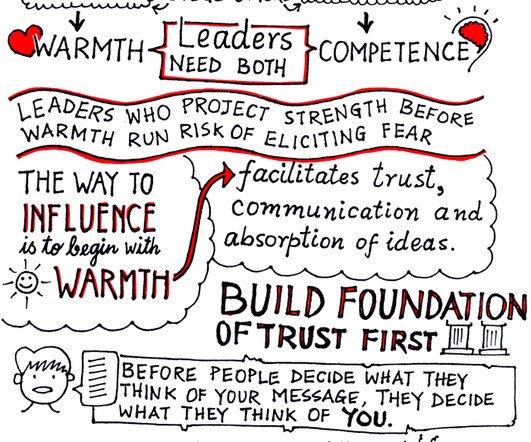 WARMTH
Leaders
NEED BOTH
COMPETENCE
LEADERS WHO PROJECT STRENGTH BEFORE
WARMTH RUN RISK OF ELICITING FEAR
THE WAY TO
INFLUENCE
is to begin with
WARMTH
facilitates trust,
communication and
absorption of ideas.
BUILD FOUNDATION
OF TRUST FIRST
BEFORE PEOPLE DECIDE WHAT THEY
THINK OF YOUR MESSAGE, THEY DECIDE
WHAT THEY THINK OF YOU.